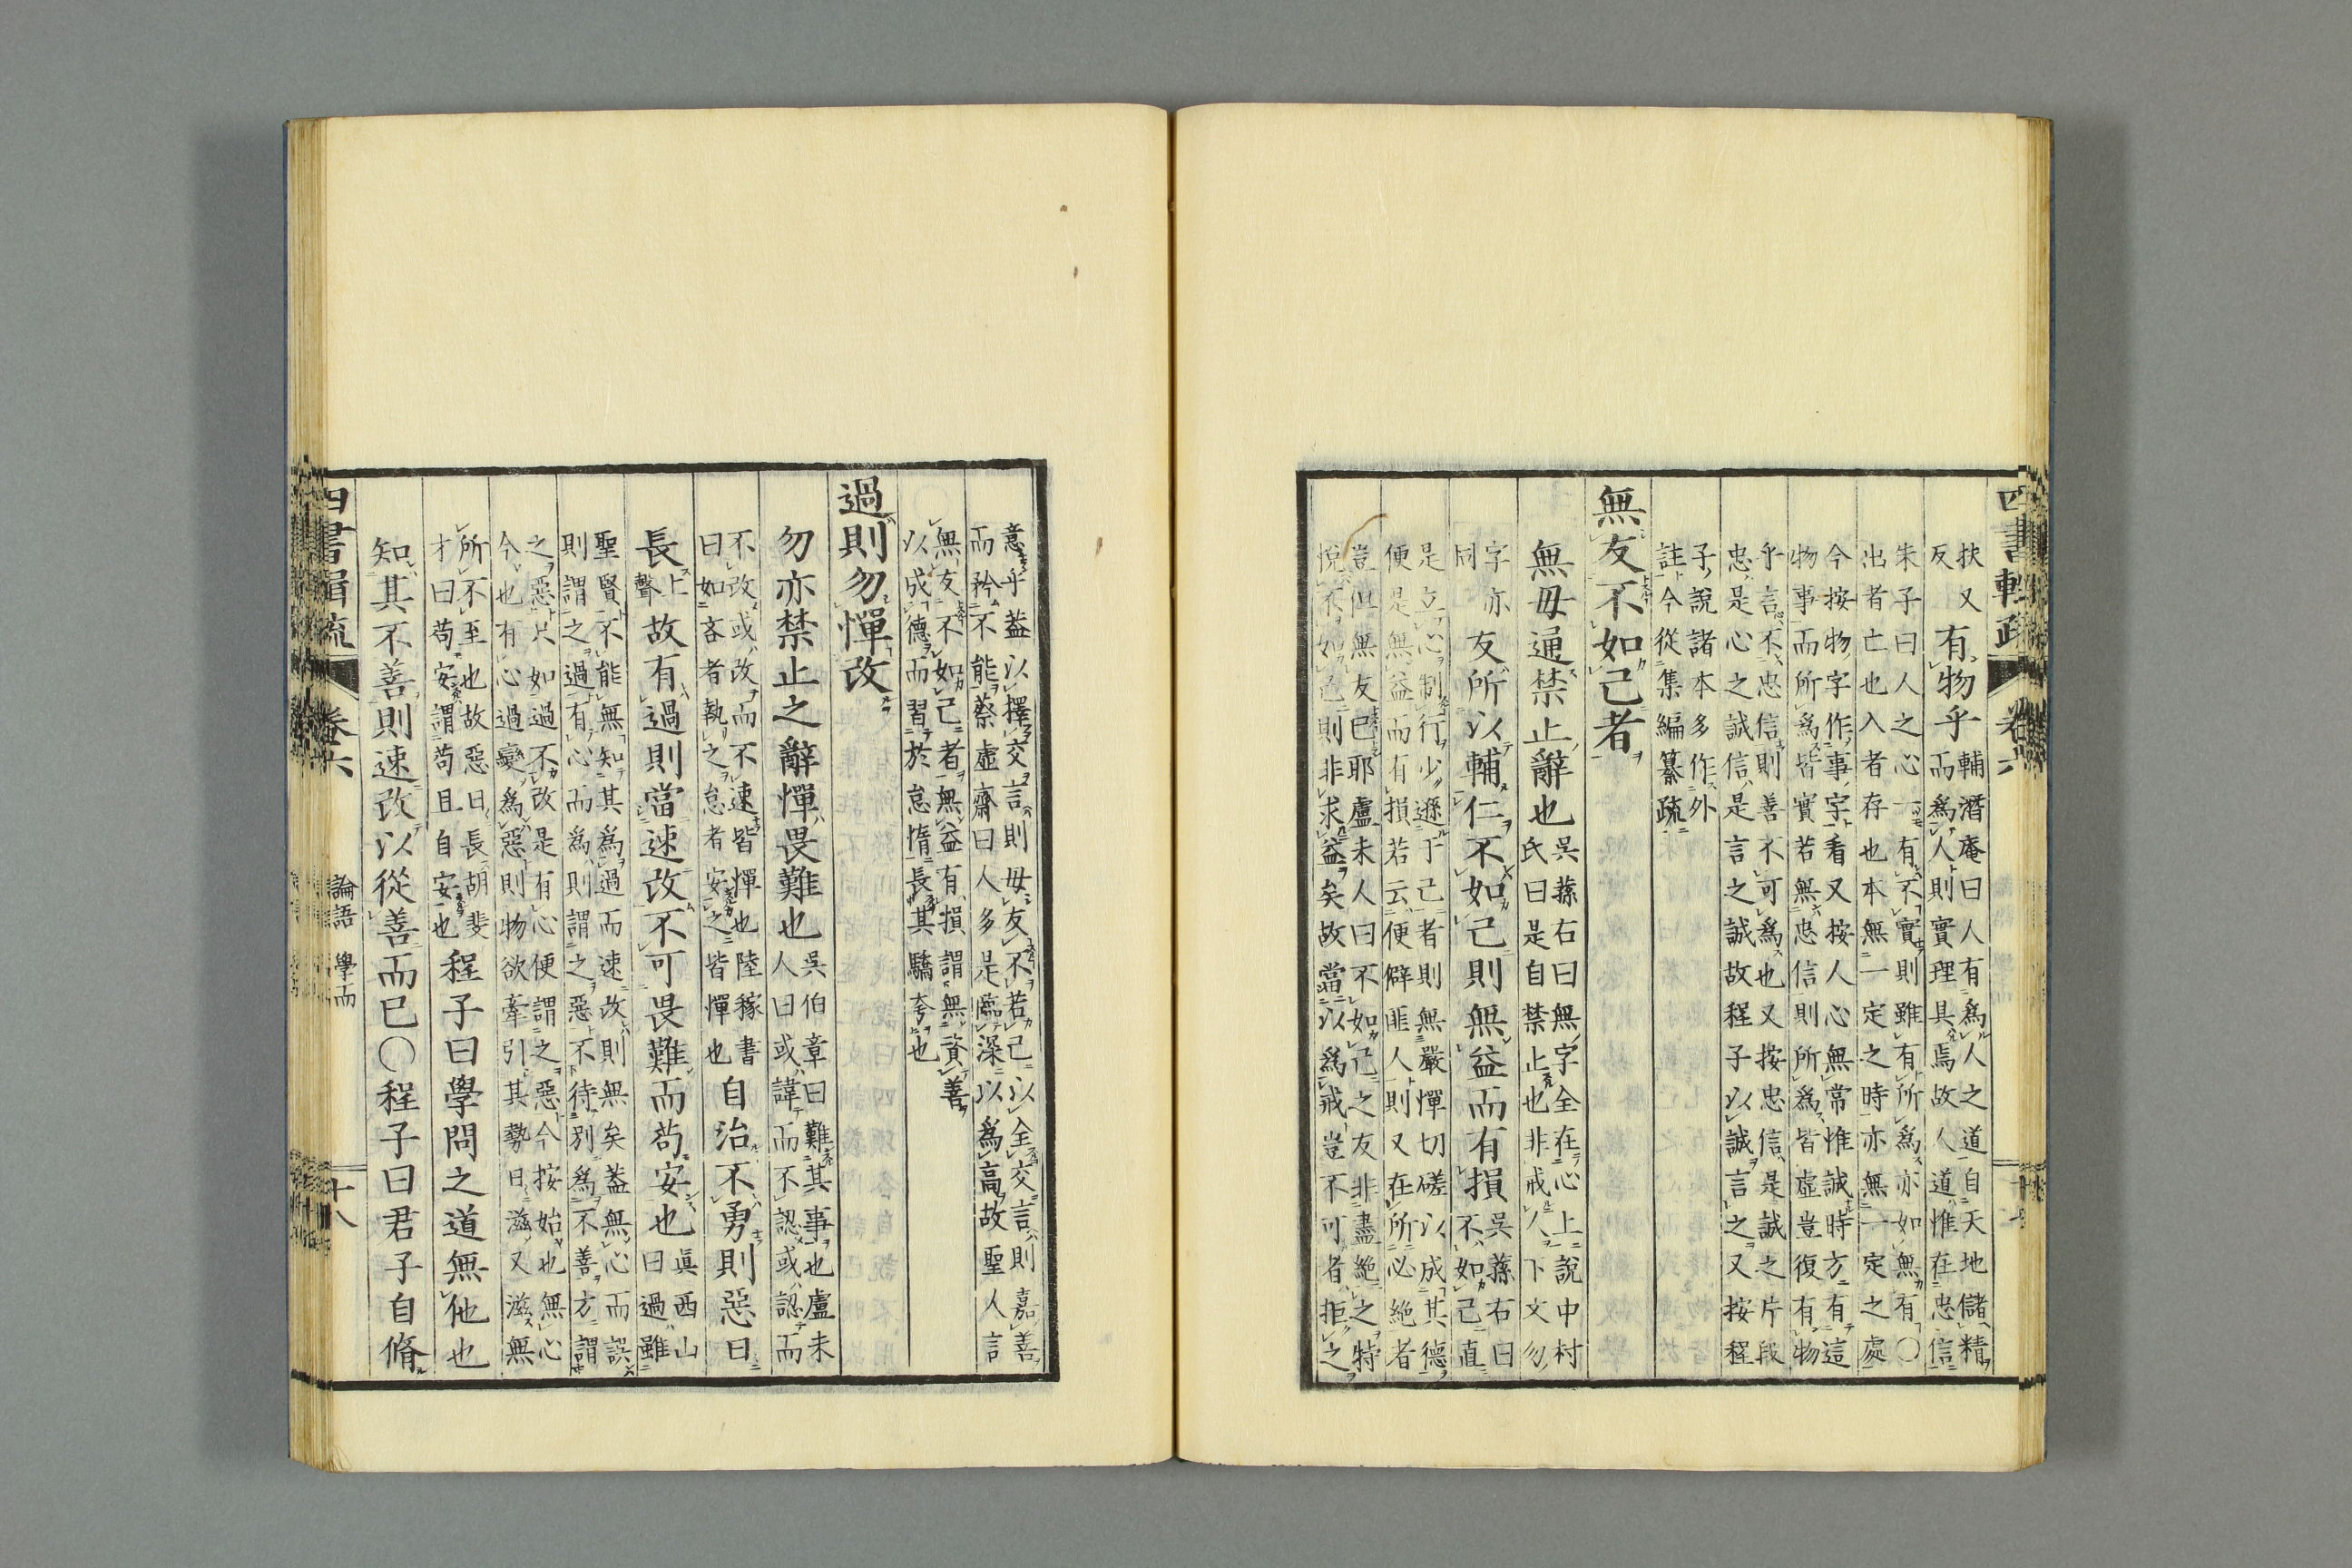 四書輯疏 卷六
扶又
反
有物乎
輔潛庵曰人有爲人之道自天地儲精
而爲人則實理具焉故人道惟在忠信
朱子曰人之心一有不實則雖有所爲亦如無有〇
出者亡也入者存也本無一定之時亦無一定之處
今按物字作事字看又按人心無常惟誠時方有這
物事而所爲皆實若無忠信則所爲皆虛豈復有物
乎言不忠信則善不可爲也又按忠信是誠之片段
忠是心之誠信是言之誠故程子以誠言之又按程
子說諸本多作外
註今從集編纂疏
無友不如己者
無毋通禁止辭也
吳蓀右曰無字全在心上說中村
氏曰是自禁止也非戒人下文勿
字亦
同
友所以輔仁不如己則無益而有損
吳蓀右曰
不如己直
是立心制行少遜于己者則無嚴憚切磋以成其德
便是無益而有損若云便僻匪人則又在所必絶者
豈但無友已耶盧未人曰不如己之友非盡絶之特
悅不如己則非求益矣故當以爲戒豈不可者拒之
意乎蓋以擇交言則毋友不若己以全交言則嘉善
而矜不能蔡虛齋曰人多是臨深以爲高故聖人言
無友不如己者無益有損謂無資善
以成德而習於怠惰長其驕夸也
過則勿憚改
勿亦禁止之辭憚畏難也
吳伯章曰難其事也盧未
人曰或諱而不認或認而
不改或改而不速皆憚也陸稼書
曰如吝者執之怠者安之皆憚也
自治不勇則惡日
長
上
聲
故有過則當速改不可畏難而苟安也
眞西山
曰過雖
聖賢不能無知其爲過而速改則無矣蓋無心而誤
則謂之過有心而爲則謂之惡不待別爲不善方謂
之惡只如過不改是有心便謂之惡今按始也無心
今也有心過變爲惡則物欲牽引其勢日滋又滋無
所不至也故惡日長胡斐
才曰苟安謂苟且自安也
程子曰學問之道無他也
知其不善則速改以從善而已〇程子曰君子自脩
四書輯疏 卷六 論語 學而 十八